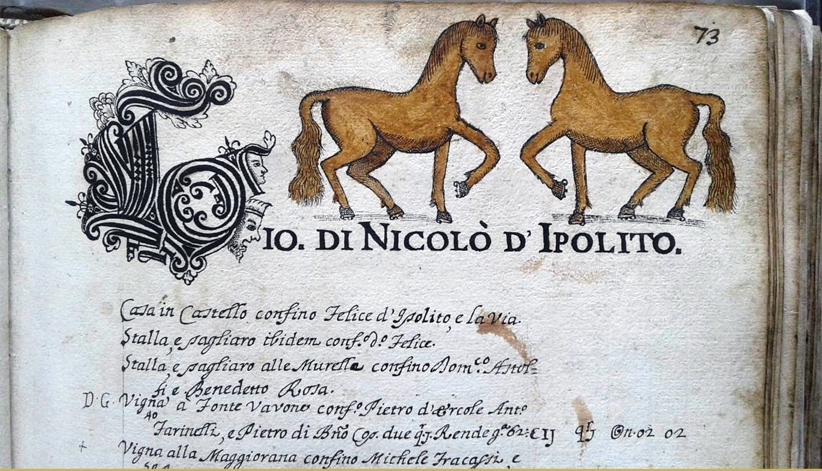 73
GIO. DI NICOLÒ D' IPOLITO.
Casa in Castello confino Felice d'Ipolito, e la Via.
Stalla, e pagliaro ibidem conf.º d.º Felice.
Stalla, e pagliaro alle Murella confino Dom.co Astol-
fi e Benedetto Rosa.
D. G. Vigna a Fonte Vavone conf.º Pietro d'Ercole Ant.º
Farinelli, e Pietro di Bño due Rende 02 02
+ Vigna alla Maggiorana confino Michele Fracassi, e